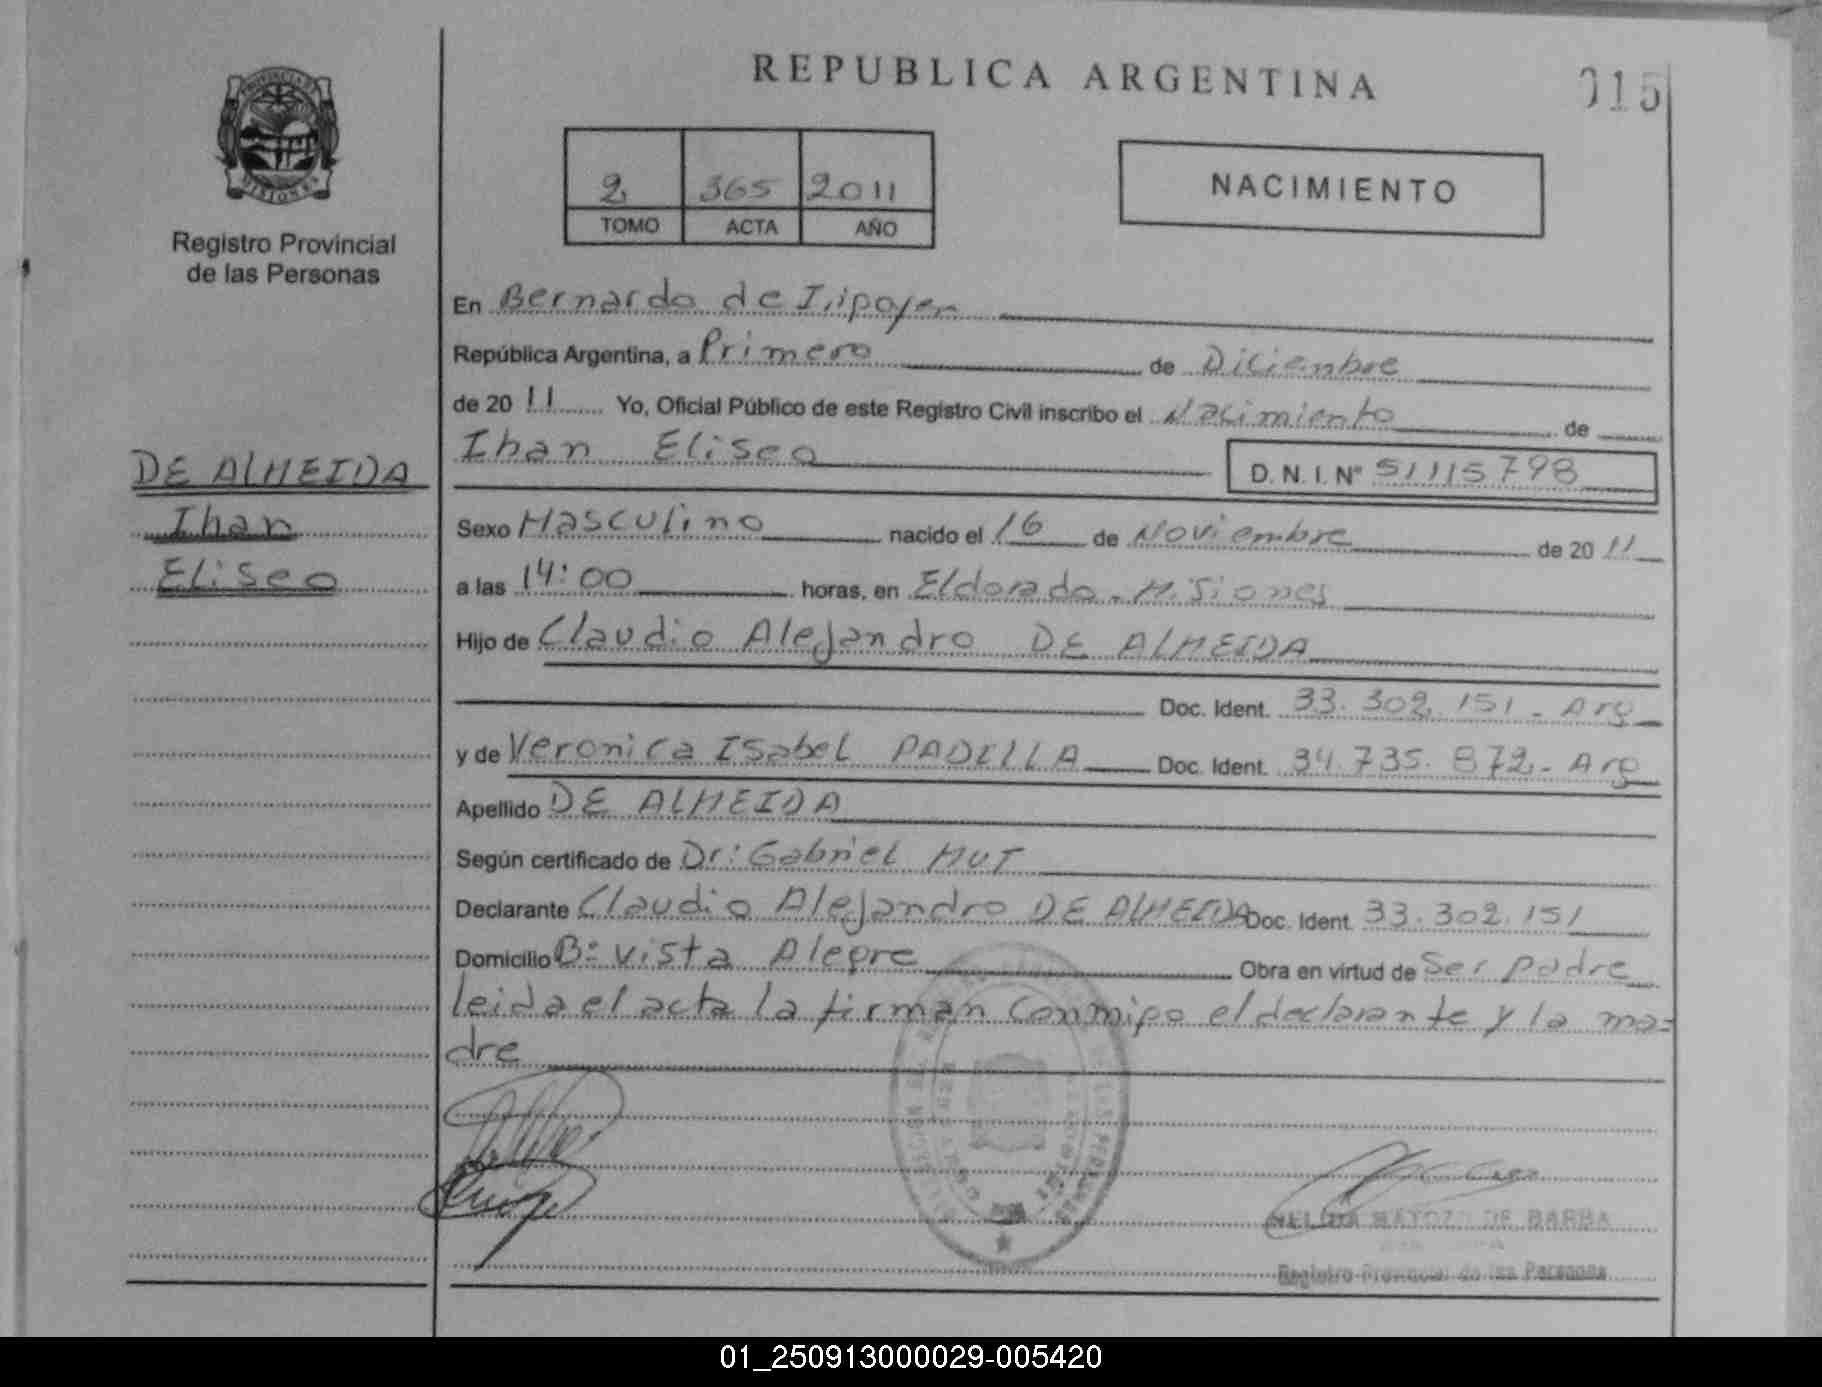 REPUBLICA ARGENTINA
015
PROVINCIA DE
MISIONES
Registro Provincial
de las Personas
2 365 2011
TOMO ACTA AÑO
NACIMIENTO
En Bernardo de Irigoyen
República Argentina, a Primero de Diciembre
de 20 11 Yo, Oficial Público de este Registro Civil inscribo el Nacimiento de
Ihan Eliseo D. N. I. Nº 51115798
DE ALMEIDA
Ihan
Eliseo
Sexo Masculino nacido el 16 de Noviembre de 20 11
a las 14:00 horas, en Eldorado - Misiones
Hijo de Claudio Alejandro DE ALMEIDA
Doc. Ident. 33.302.151 - Arg
y de Veronica Isabel PADILLA Doc. Ident. 34.735.872 - Arg
Apellido DE ALMEIDA
Según certificado de Dr: Gabriel MUT
Declarante Claudio Alejandro DE ALMEIDA Doc. Ident. 33.302.151
Domicilio Bº Vista Alegre Obra en virtud de Ser padre
leida el acta la firman conmigo el declarante y la ma=
dre
NELIDA MATOZO DE BARBA
Registro Provincial de las Personas
01_250913000029-005420